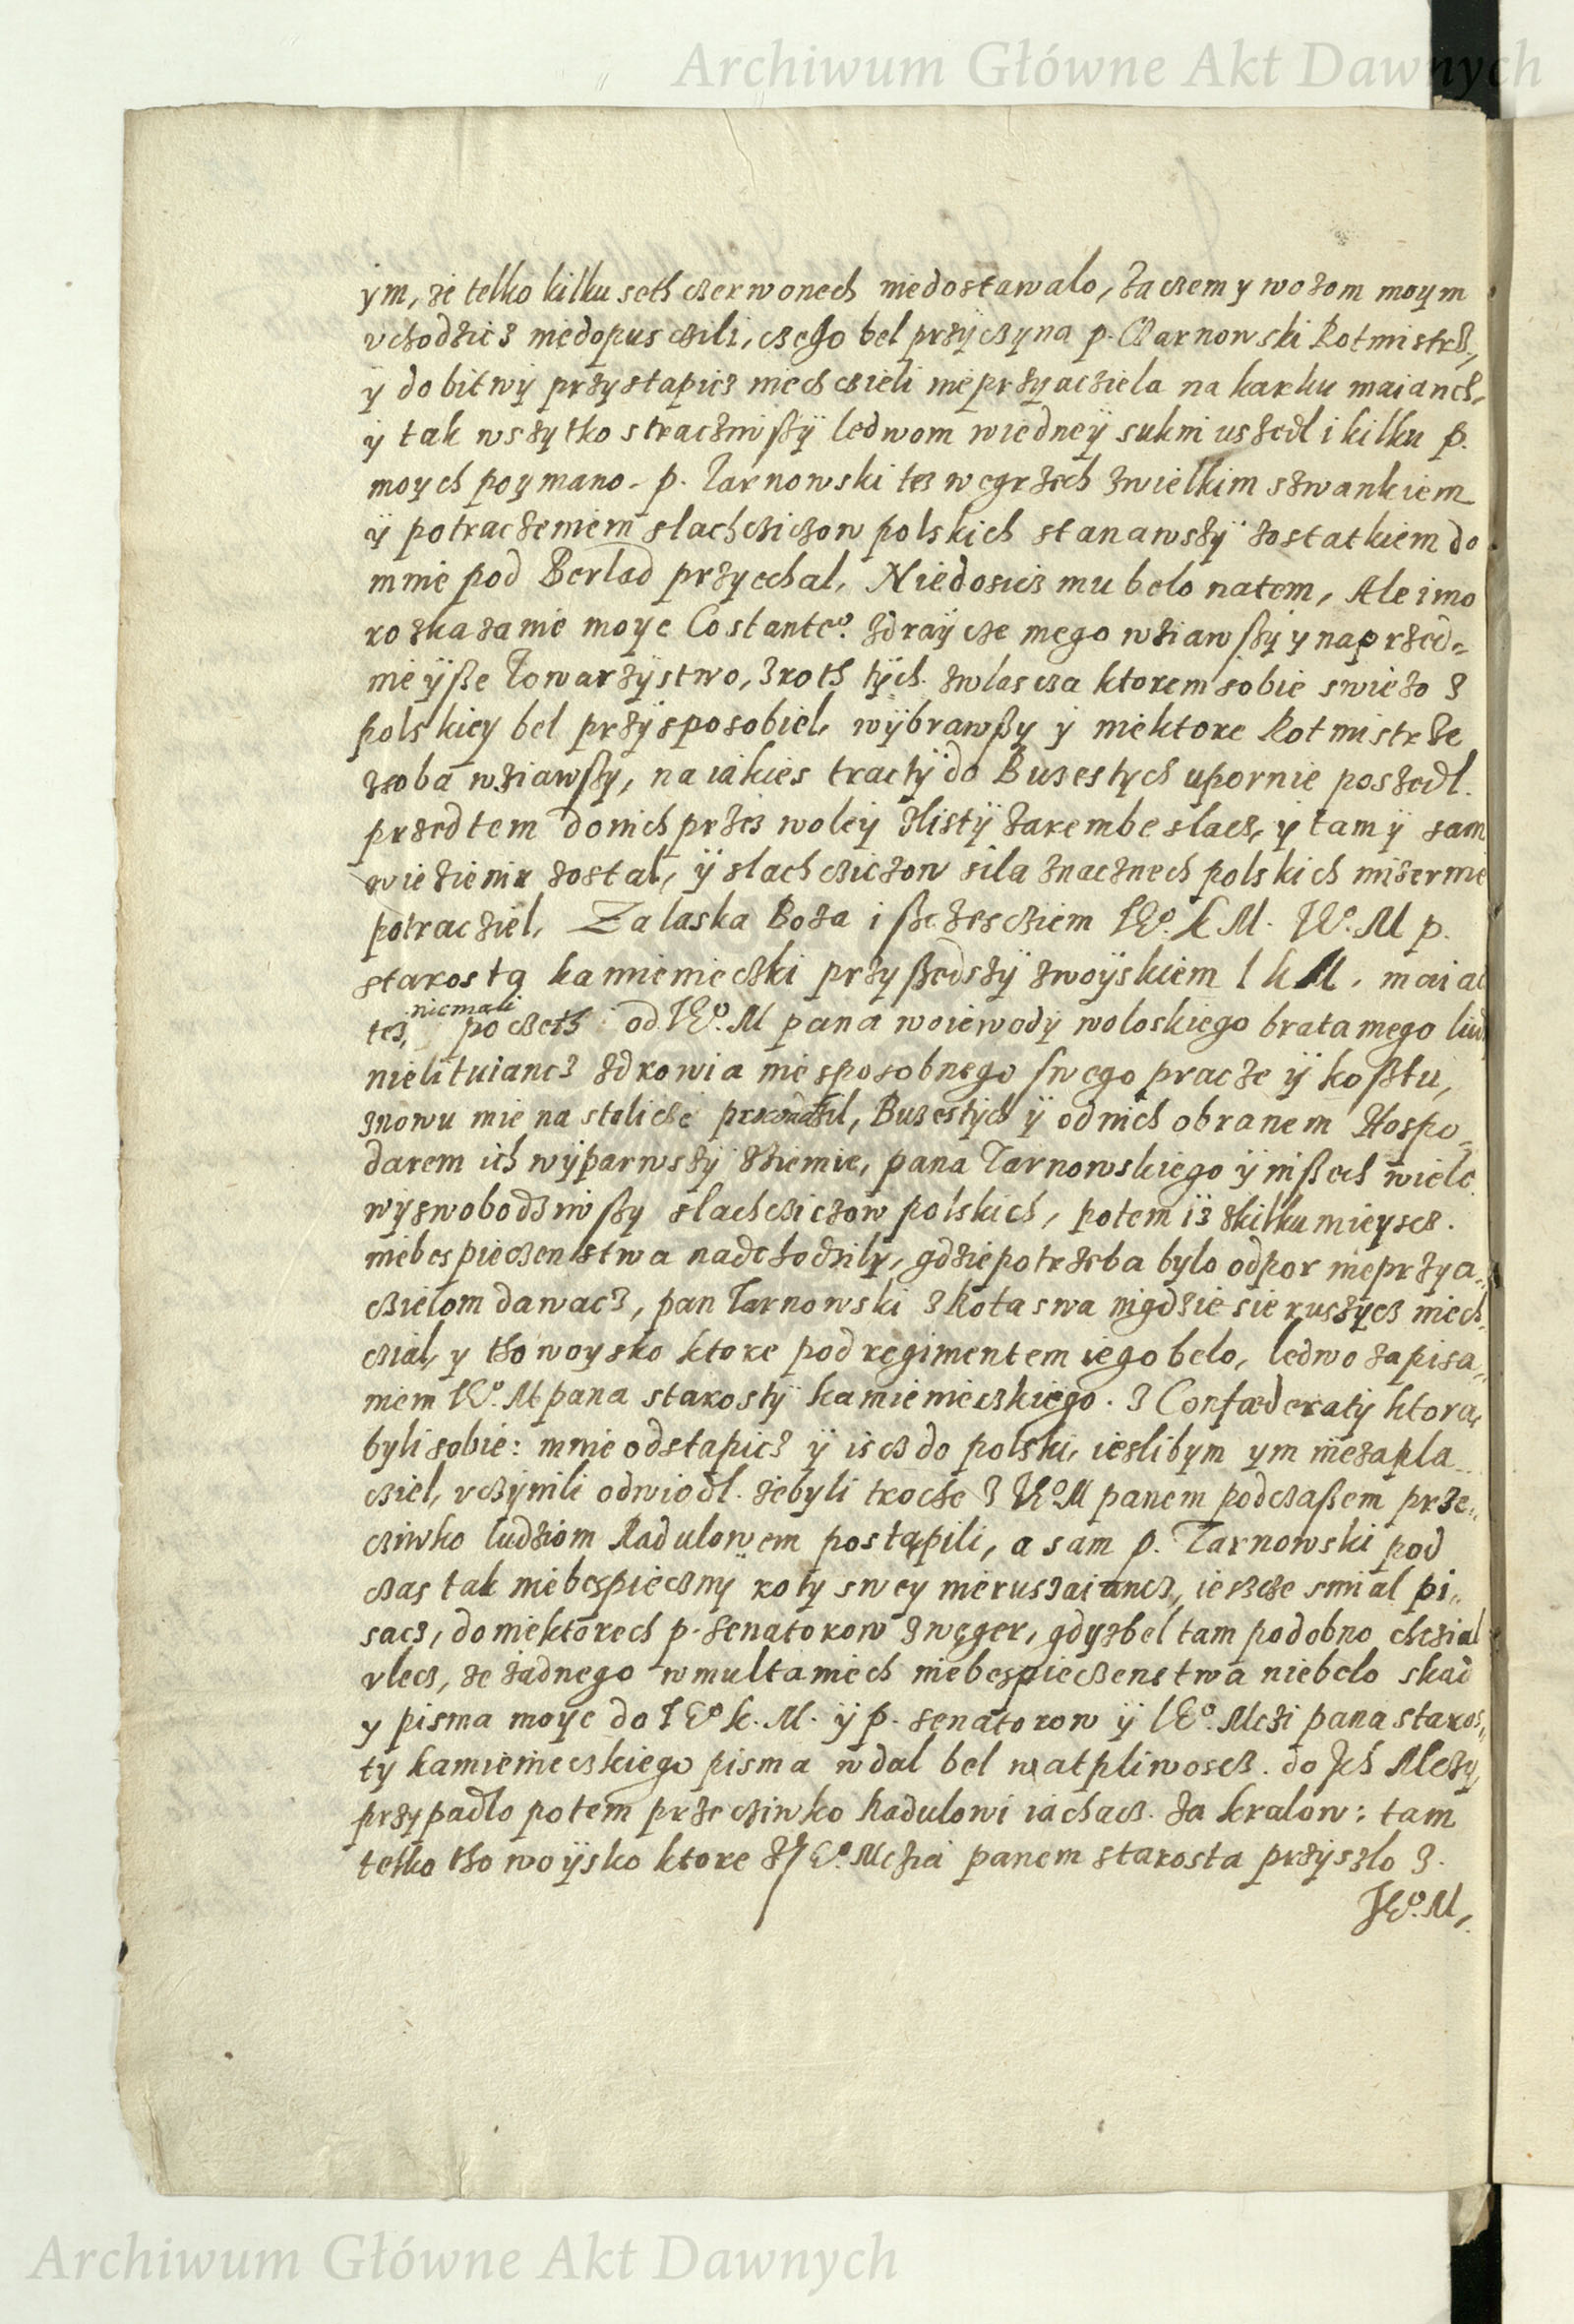 Archiwum Główne Akt Dawnych
ym, że telko kilku seth czerwonech niedostawalo, zaczem y wozom moym
vchodzicz niedopusczili, czego bel przyczyna p. Czarnowski Rotmistrz,
ÿ do bitwÿ przystapicz niechczieli nieprzyacziela na karku maiancz,
ÿ tak wszytko straczÿwßÿ ledwom wiedneÿ sukni uszedl i kilku p.
moych poymano. p. Tarnowski tez wegrzech zwielkim szwankiem
ÿ potraczeniem slachcziczow polskich stanawszÿ zostatkiem do
mnie pod Berlad przyechal, Niedosicz mu belo natem, Ale imo
roskazanie moye Costanteo. zdraÿcze mego wziawßÿ y naprzed-
nieÿße Towarzÿstwo, zroth tÿch zwlascza ktorem sobie swiezo z
polskiey bel przÿsposobiel, wÿbrawßy ÿ niektore Rotmistrze
zsoba wziawßy, na iakies tractÿ do Buzestych upornie poszedl.
przedtem donich przez woleÿ glistÿ zarembe slacz, ÿ tam ÿ sam
wiezieniem zostal, ÿ slachcziczow sila znacznech polskich mizernie
potracziel, Za laska Boza i ßczescziem JEo. K M. JEo. M p.
starosta kamienieczki przyßedszÿ zwoÿskiem J k M. maiac
niemali
tez, poczeth od JEo. M pana woiewodÿ woloskiego brata mego lud
nielituiancz zdrowia niesposobnego swego pracze ÿ koßtu,
znowu mie na stolicze prowadzil, Buzestÿch ÿ odnich obranem Hospo-
darem ich wÿparwszÿ zziemie, pana Tarnowskiego ÿ inßech wiele
wyswobodziwßy slachcziczow polskich, potem iz zkilku mieyscz
niebespieczenstwa nadchodzily, gdzie potrzeba bylo odpor nieprzya-
czielom dawacz, pan Tarnowski z Rota swa nigdzie sie ruszycz niech-
czial, y tho woysko ktore pod regimentem iego belo, ledwo zapisa-
niem JEo. M pana starostÿ kamienieczkiego. z Confœderatÿ ktora
byli sobie: mnie odstapicz ÿ iscz do polski, ieslibym ym niezapla-
cziel, vczÿnili odwiodl. zebyli troche z JEo. M panem podczaßem prze-
cziwko ludziom Radulowem postapili, a sam p. Tarnowski pod
czas tak niebespiecznÿ roty swey nieruszaiancz, ieszcze smial pi-
sacz, do niektorech p. senatorow z węger, gdyzbel tam podobno chczial
vlecz, ze zadnego w multaniech niebespieczenstwa niebelo skad
y pisma moye do JEo k. M. ÿ p. senatorow ÿ JEo. Mczi pana staros-
ty kamienieczkiego pisma wdal bel watpliwoscz. do Jch Mczy,
przypadlo potem przecziwko Radulowi iachacz. za kralow: tam
telko tho woÿsko ktore z JEo. Mczia panem starosta przyszlo z.
JEo. M,
Archiwum Główne Akt Dawnych